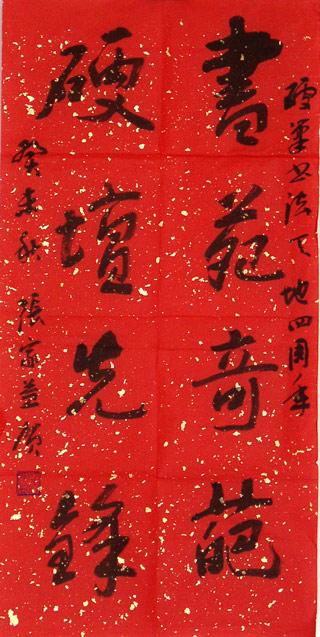 硬笔书法天地四周年
書苑奇葩
硬壇先鋒
癸未秋 張家益賀